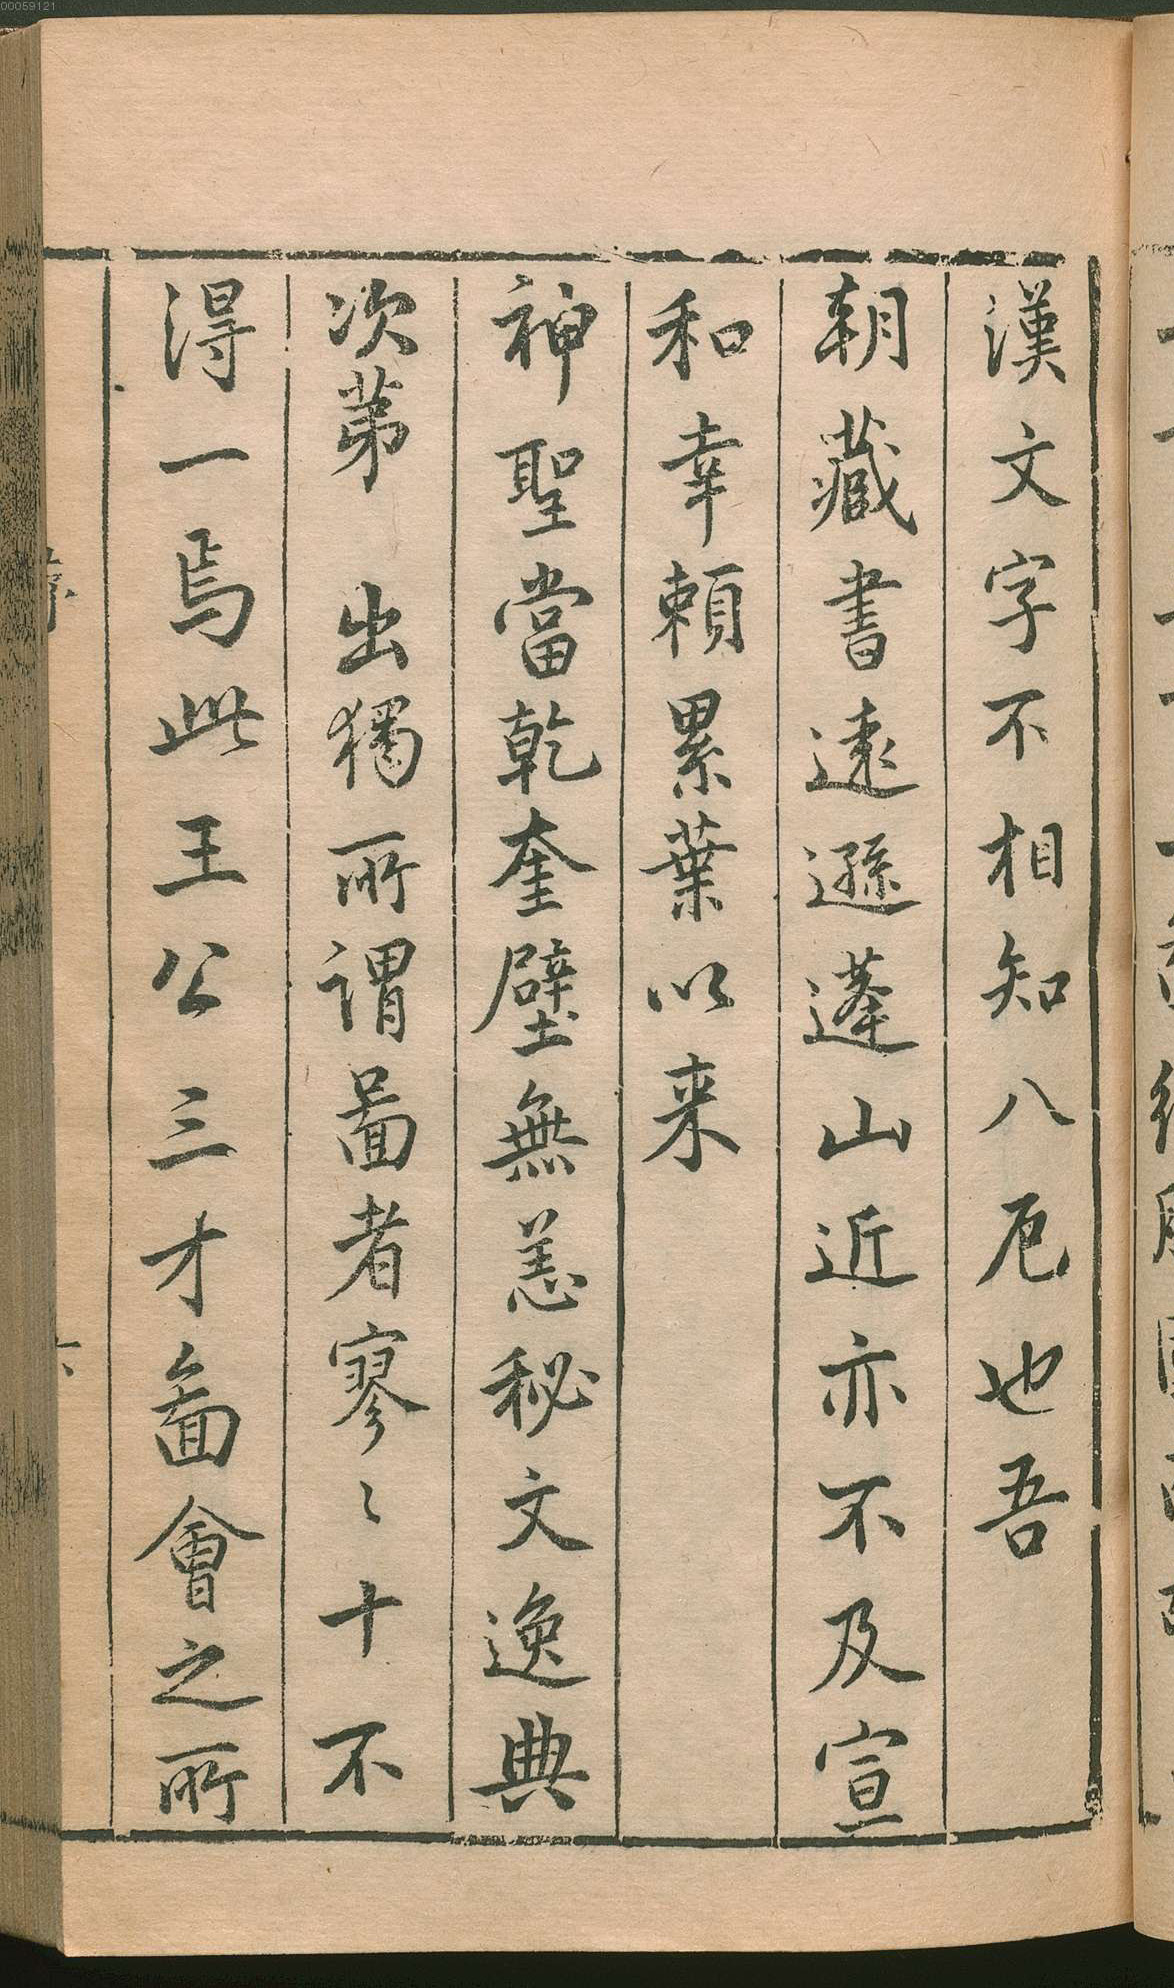 00059121
漢文字不相知八厄也吾
朝藏書遠遜蓬山近亦不及宣
和幸頼累葉以来
神聖當乾奎壁無恙秘文逸典
次第 出獨所謂啚者寥〻十不
淂一焉此王公三才啚會之所